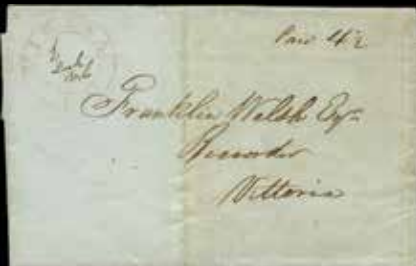 Paid 4½
Franklin Welsh Esqr
Recorder
Vittoria